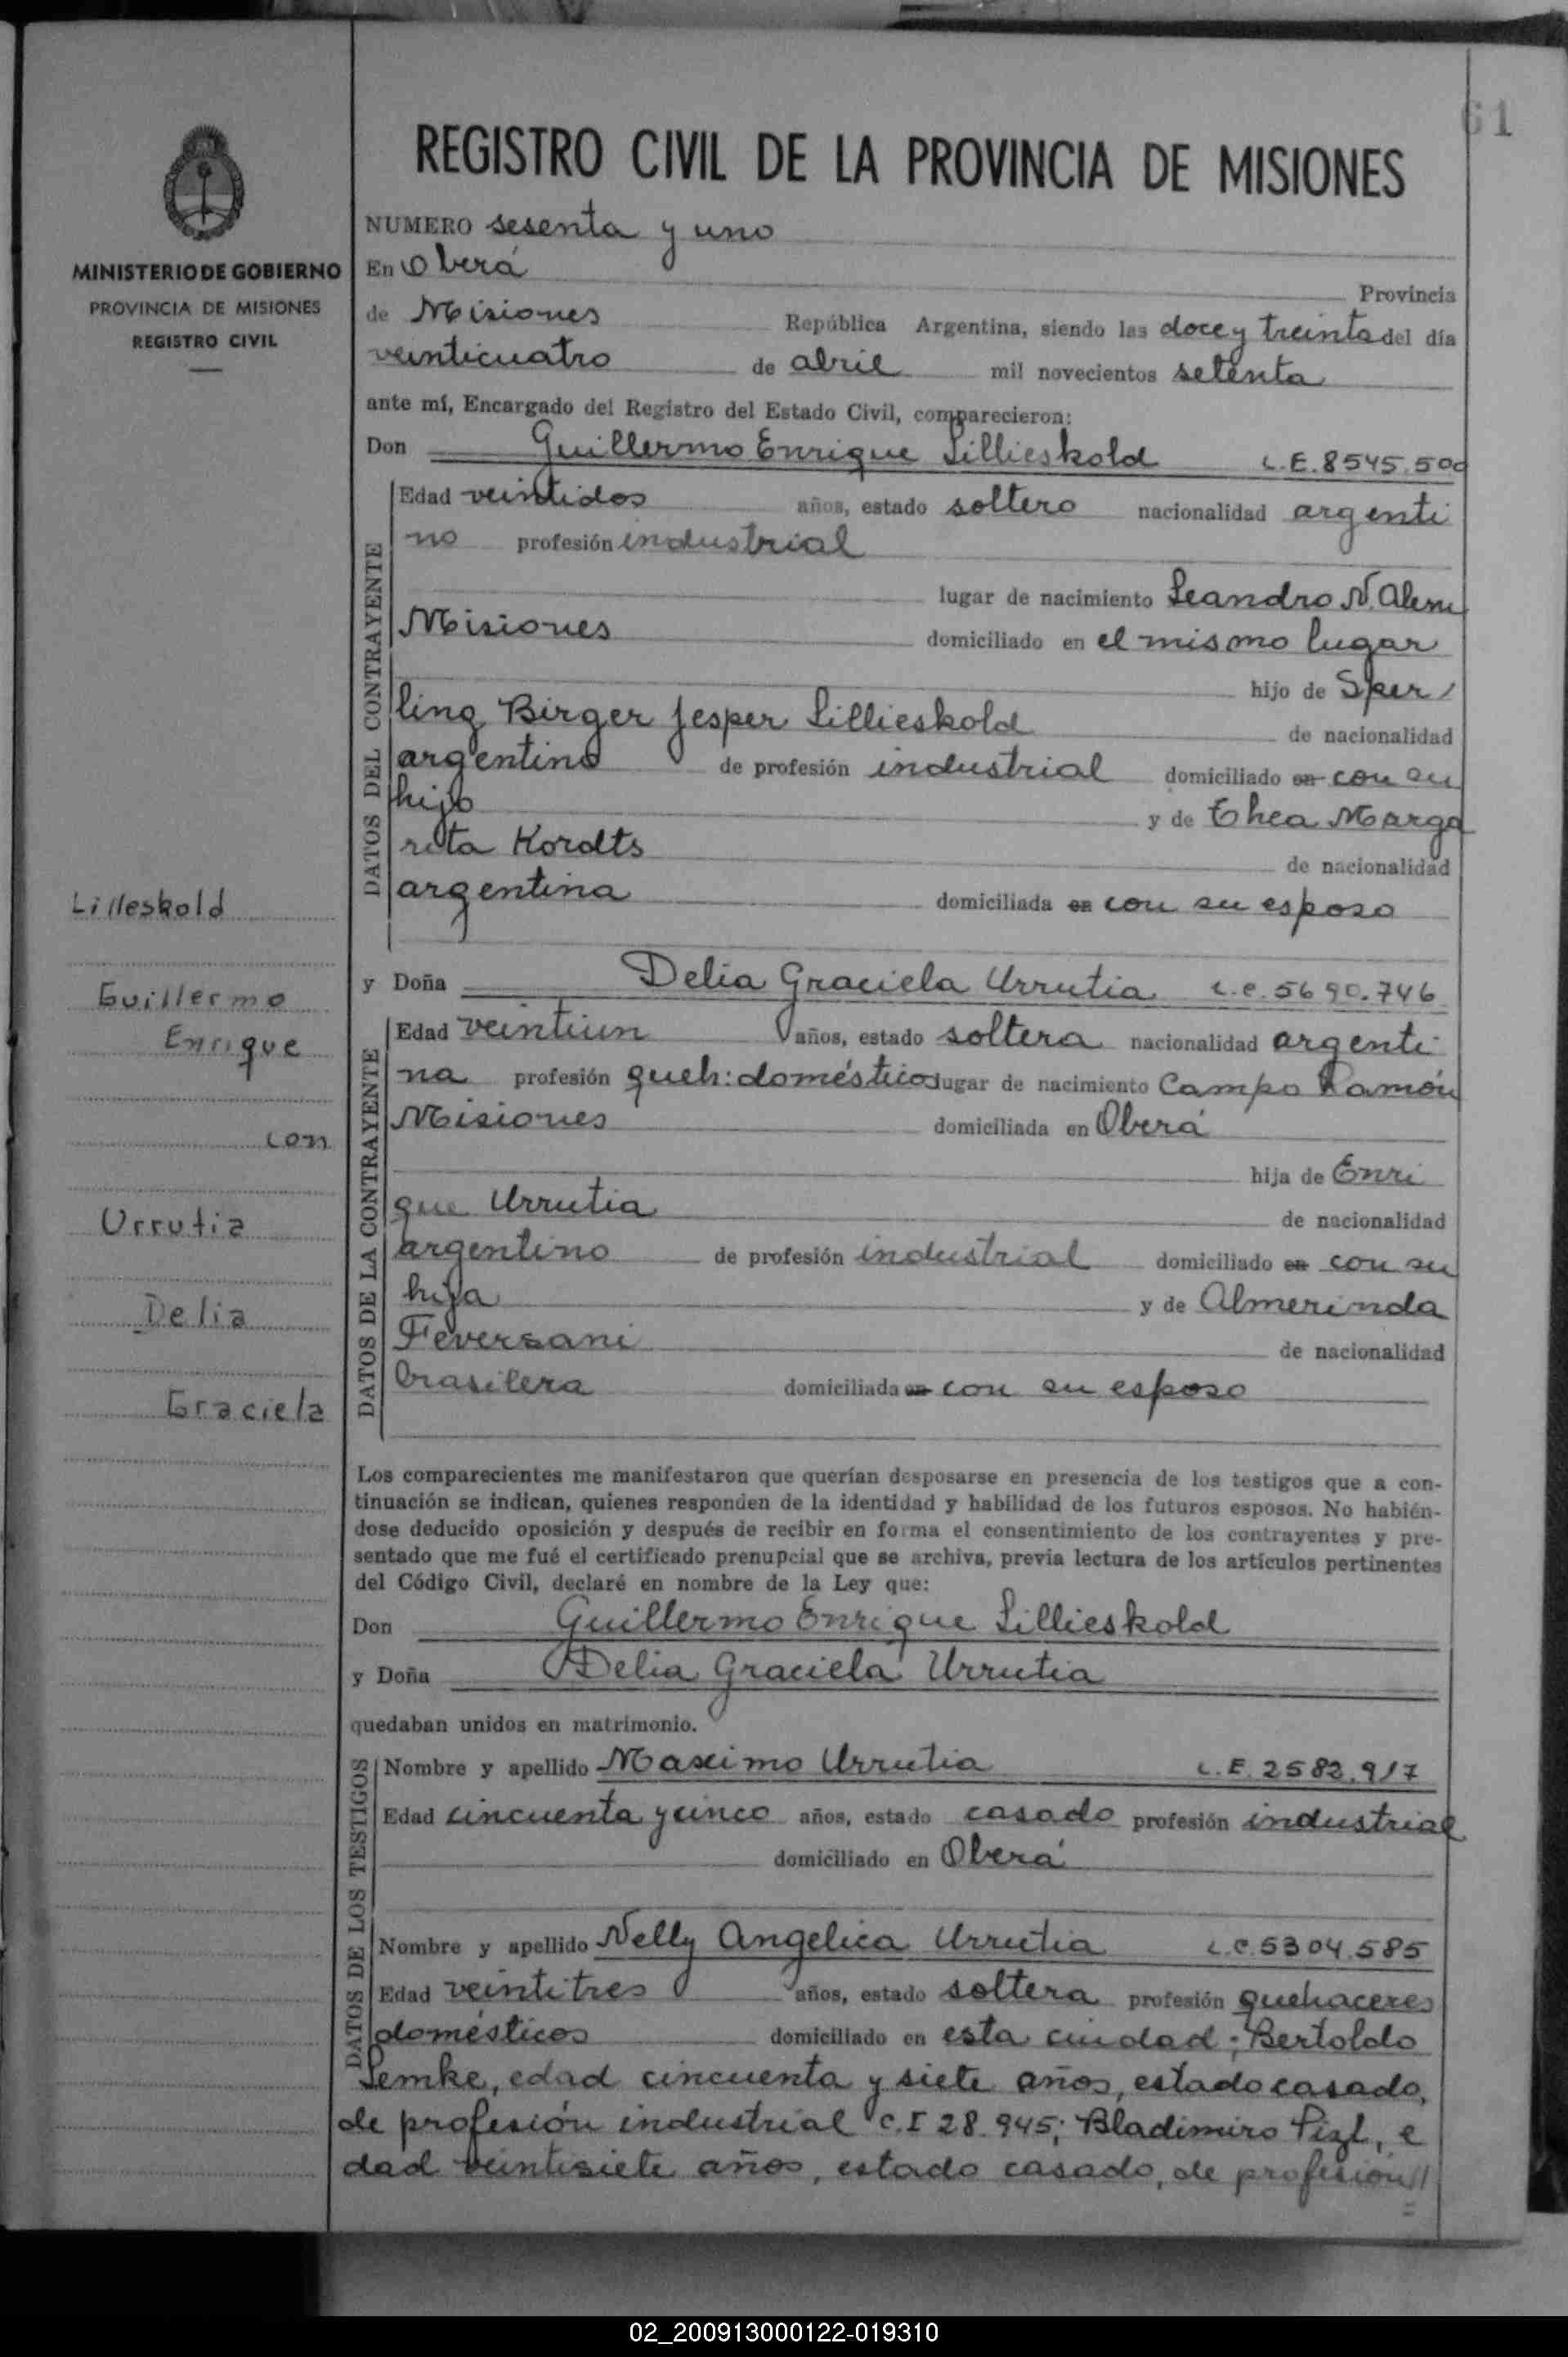 61
REGISTRO CIVIL DE LA PROVINCIA DE MISIONES
MINISTERIO DE GOBIERNO
PROVINCIA DE MISIONES
REGISTRO CIVIL
NUMERO sesenta y uno
En Oberá Provincia
de Misiones República Argentina, siendo las doce y treinta del día
veinticuatro de abril mil novecientos setenta
ante mí, Encargado del Registro del Estado Civil, comparecieron:
Don Guillermo Enrique Lillieskold L.E. 8545.500
DATOS DEL CONTRAYENTE
Edad veintidos años, estado soltero nacionalidad argenti
no profesión industrial
lugar de nacimiento Leandro N. Alem
Misiones domiciliado en el mismo lugar
hijo de Sper/
ling Birger Jesper Lillieskold de nacionalidad
argentino de profesión industrial domiciliado en con su
hijo y de Thea Marga
rita Kordts de nacionalidad
argentina domiciliada en con su esposo
Lilleskold
Guillermo
Enrique
con
Urrutia
Delia
Graciela
y Doña Delia Graciela Urrutia L.C. 5690.746
DATOS DE LA CONTRAYENTE
Edad veintiun años, estado soltera nacionalidad argenti
na profesión queh: domésticos lugar de nacimiento Campo Ramón
Misiones domiciliada en Oberá
hija de Enri
que Urrutia de nacionalidad
argentino de profesión industrial domiciliado en con su
hija y de Almerinda
Feversani de nacionalidad
brasilera domiciliada en con su esposo
Los comparecientes me manifestaron que querían desposarse en presencia de los testigos que a con-
tinuación se indican, quienes responden de la identidad y habilidad de los futuros esposos. No habién-
dose deducido oposición y después de recibir en forma el consentimiento de los contrayentes y pre-
sentado que me fué el certificado prenupcial que se archiva, previa lectura de los artículos pertinentes
del Código Civil, declaré en nombre de la Ley que:
Don Guillermo Enrique Lillieskold
y Doña Delia Graciela Urrutia
quedaban unidos en matrimonio.
DATOS DE LOS TESTIGOS
Nombre y apellido Maximo Urrutia L.E. 2582.917
Edad cincuenta y cinco años, estado casado profesión industrial
domiciliado en Oberá
Nombre y apellido Nelly Angelica Urrutia L.C. 5304.585
Edad veintitres años, estado soltera profesión quehaceres
domésticos domiciliado en esta ciudad; Bertoldo
Lemke, edad cincuenta y siete años, estado casado,
de profesión industrial C.I 28.945; Bladimiro Pizl, e
dad veintisiete años, estado casado, de profesión//
02_200913000122-019310